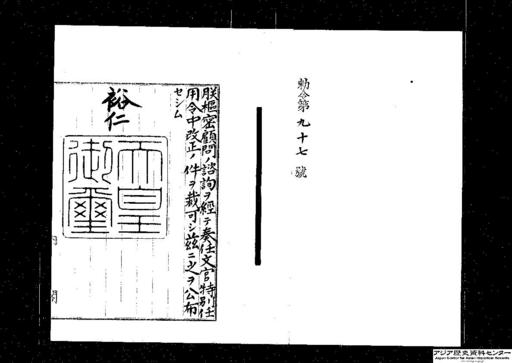 勅令第九十七號
朕樞密顧問ノ諮詢ヲ經テ奏任文官特別任
用令中改正ノ件ヲ裁可シ茲ニ之ヲ公布
セシム
裕仁
天皇
御璽
内閣
アジア歴史資料センター
Japan Center for Asian Historical Records